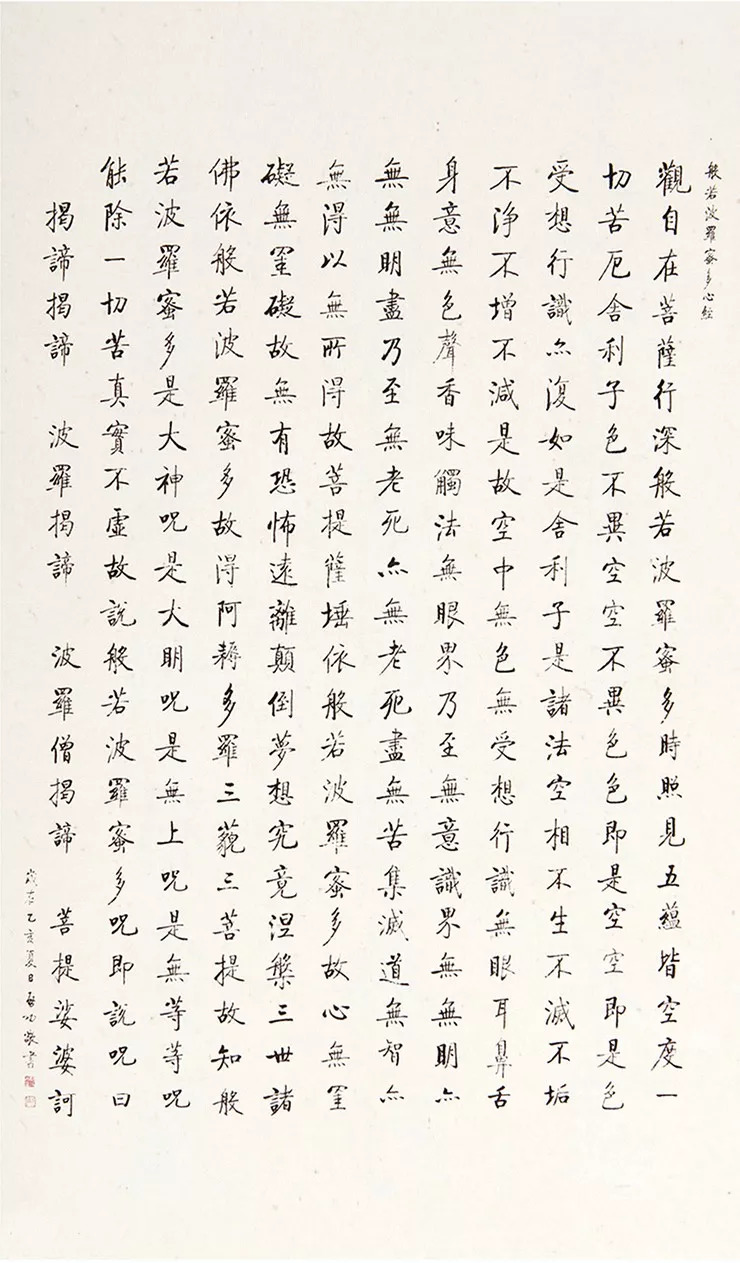 般若波羅蜜多心經
觀自在菩薩行深般若波羅蜜多時照見五蘊皆空度一
切苦厄舍利子色不異空空不異色色即是空空即是色
受想行識亦復如是舍利子是諸法空相不生不滅不垢
不淨不增不減是故空中無色無受想行識無眼耳鼻舌
身意無色聲香味觸法無眼界乃至無意識界無無明亦
無無明盡乃至無老死亦無老死盡無苦集滅道無智亦
無得以無所得故菩提薩埵依般若波羅蜜多故心無罣
礙無罣礙故無有恐怖遠離顛倒夢想究竟涅槃三世諸
佛依般若波羅蜜多故得阿耨多羅三藐三菩提故知般
若波羅蜜多是大神咒是大明咒是無上咒是無等等咒
能除一切苦真實不虛故說般若波羅蜜多咒即說咒曰
揭諦揭諦 波羅揭諦 波羅僧揭諦 菩提娑婆訶
歲在乙亥夏日啟功敬書